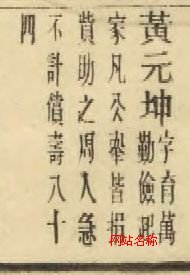 黃元坤字育萬
勤儉起
家凡公舉皆捐
貲助之周人急
不計償壽八十
四
网站名称